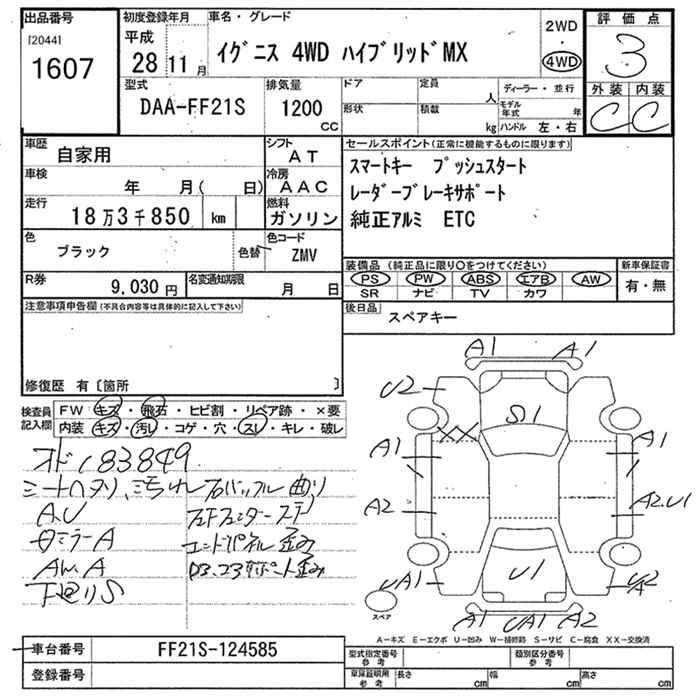 出品番号
[2044]
1607
初度登録年月
平成
28 11 月
車名・グレード
イグニス 4WD ハイブリッドMX
2WD
・
4WD
評価点
3
外装 内装
C C
型式
DAA-FF21S
排気量
1200
CC
ドア
形状
定員
人
積載
kg
ディーラー・並行
モデル年式 年
ハンドル 左・右
車歴
自家用
シフト
AT
車検
年 月( 日)
冷房
AAC
走行
18万3千850 km
燃料
ガソリン
色
ブラック
色替
色コード
ZMV
R券
9,030 円
名変通知期限
月 日
セールスポイント(正常に機能するものに限ります)
スマートキー プッシュスタート
レーダーブレーキサポート
純正アルミ ETC
装備品 (純正品に限り○をつけてください)
PS PW ABS エアB AW
SR ナビ TV カワ
新車保証書
有・無
後日品
スペアキー
注意事項申告欄(不具合内容等は具体的に記入して下さい)
修復歴 有〔箇所 〕
検査員
記入欄
FW キズ・飛石・ヒビ割・リペア跡・×要
内装 キズ・汚レ・コゲ・穴・スレ・キレ・破レ
183849
シートヘタリ、汚れ
A.U
ミラーA
AW.A
下廻りS
曲り
エンドパネル歪み
サポート歪み
A1 A1
U2
S1
XX
A1 A1
A2 A2.U1
U1
UA1 U2
A
A1 UA1 A2
スペア
A-キズ E-エクボ U-凹み W-補修跡 S-サビ C-腐食 XX-交換済
車台番号
FF21S-124585
登録番号
型式指定番号
参考
類別区分番号
参考
車庫証明用
参考
長さ cm 幅 cm 高さ cm